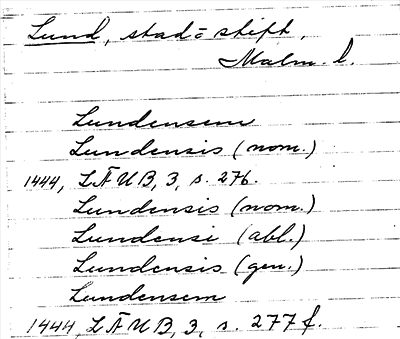 Lund, stad = stift,
Malm. l.
Lundensem
Lundensis (nom.)
1444, LÄUB, 3, s. 276.
Lundensis (nom.)
Lundensi (abl.)
Lundensis (gen.)
Lundensem
1444, LÄUB, 3, s. 277 f.